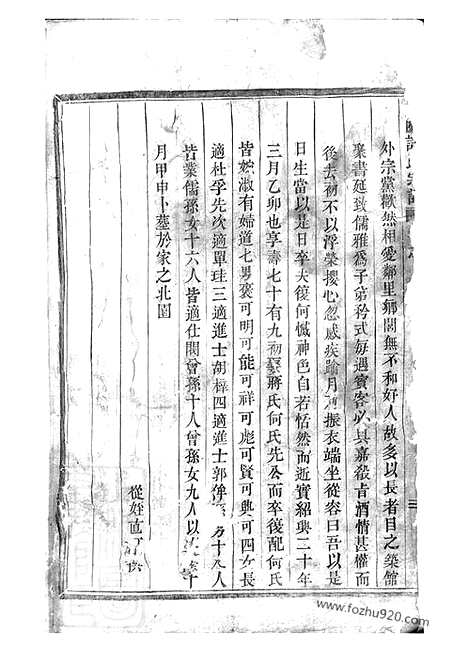 外宗黨歡然相愛鄰里鄉閭無不和好人故多以長者目之築館
聚書延致儒雅為子弟矜式每遇賓客必具嘉殽旨酒情甚權而
後去初不以浮榮攖心忽感疾踰月振衣端坐從容曰吾以是
日生當以是日卒夫復何憾神色自若恬然而逝實紹興二十年
三月乙卯也享壽七十有九初娶蔣氏何氏先公而卒後配何氏
皆婉淑有婦道七男褒可明可能可祥可彪可賢可興可四女長
適杜孚先次適單珪三適進士胡梓四適進士郭 人
皆業儒孫女十六人皆適仕閥曾孫十人曾孫女九人以 十
月甲申卜塟於家之北園
從姪直
www.fozhu920.com